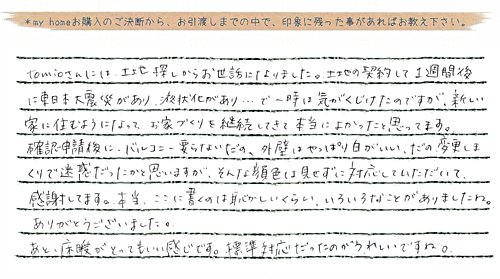 *my homeお購入のご決断から、お引渡しまでの中で、印象に残った事があればお教え下さい。
tomioさんには、土地探しからお世話になりました。土地の契約して1週間後
に東日本大震災があり、液状化があり…で一時は気がくじけたのですが、新しい
家に住むようになって、お家づくりを継続してきて本当によかったと思ってます。
確認申請後に、バルコニー要らないだの、外壁はやっぱり白がいい、だの変更しま
くりで迷惑だったかと思いますが、そんな顔色は見せずに対応していただいて、
感謝してます。本当、ここに書くのは恥かしいくらい、いろいろなことがありましたね。
ありがとうございました。
あと、床暖がとってもいい感じです。標準対応だったのがうれしいですね。